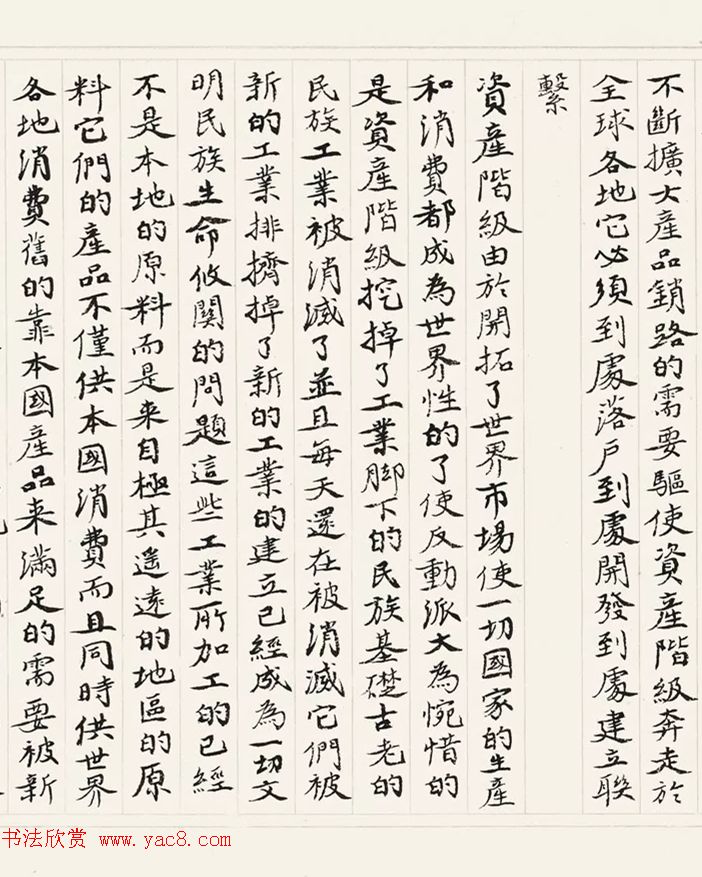 不斷擴大產品銷路的需要驅使資產階級奔走於
全球各地它必須到處落戶到處開發到處建立聯
繫
資產階級由於開拓了世界市場使一切國家的生產
和消費都成為世界性的了使反動派大為惋惜的
是資產階級挖掉了工業脚下的民族基礎古老的
民族工業被消滅了並且每天還在被消滅它們被
新的工業排擠掉了新的工業的建立已經成為一切文
明民族生命攸關的問題這些工業所加工的已經
不是本地的原料而是来自極其遥遠的地區的原
料它們的產品不僅供本國消費而且同時供世界
各地消費舊的靠本國產品来滿足的需要被新
书法欣赏 www.yac8.com